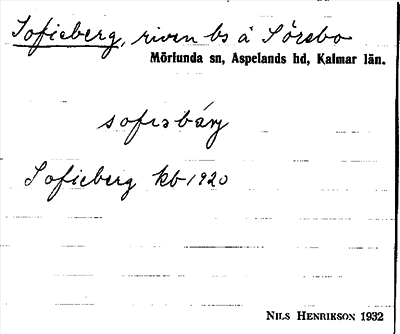 Sofieberg, riven bs å Sörebo
Mörlunda sn, Aspelands hd, Kalmar län.
sofiəbärj
Sofieberg kb 1920
NILS HENRIKSON 1932